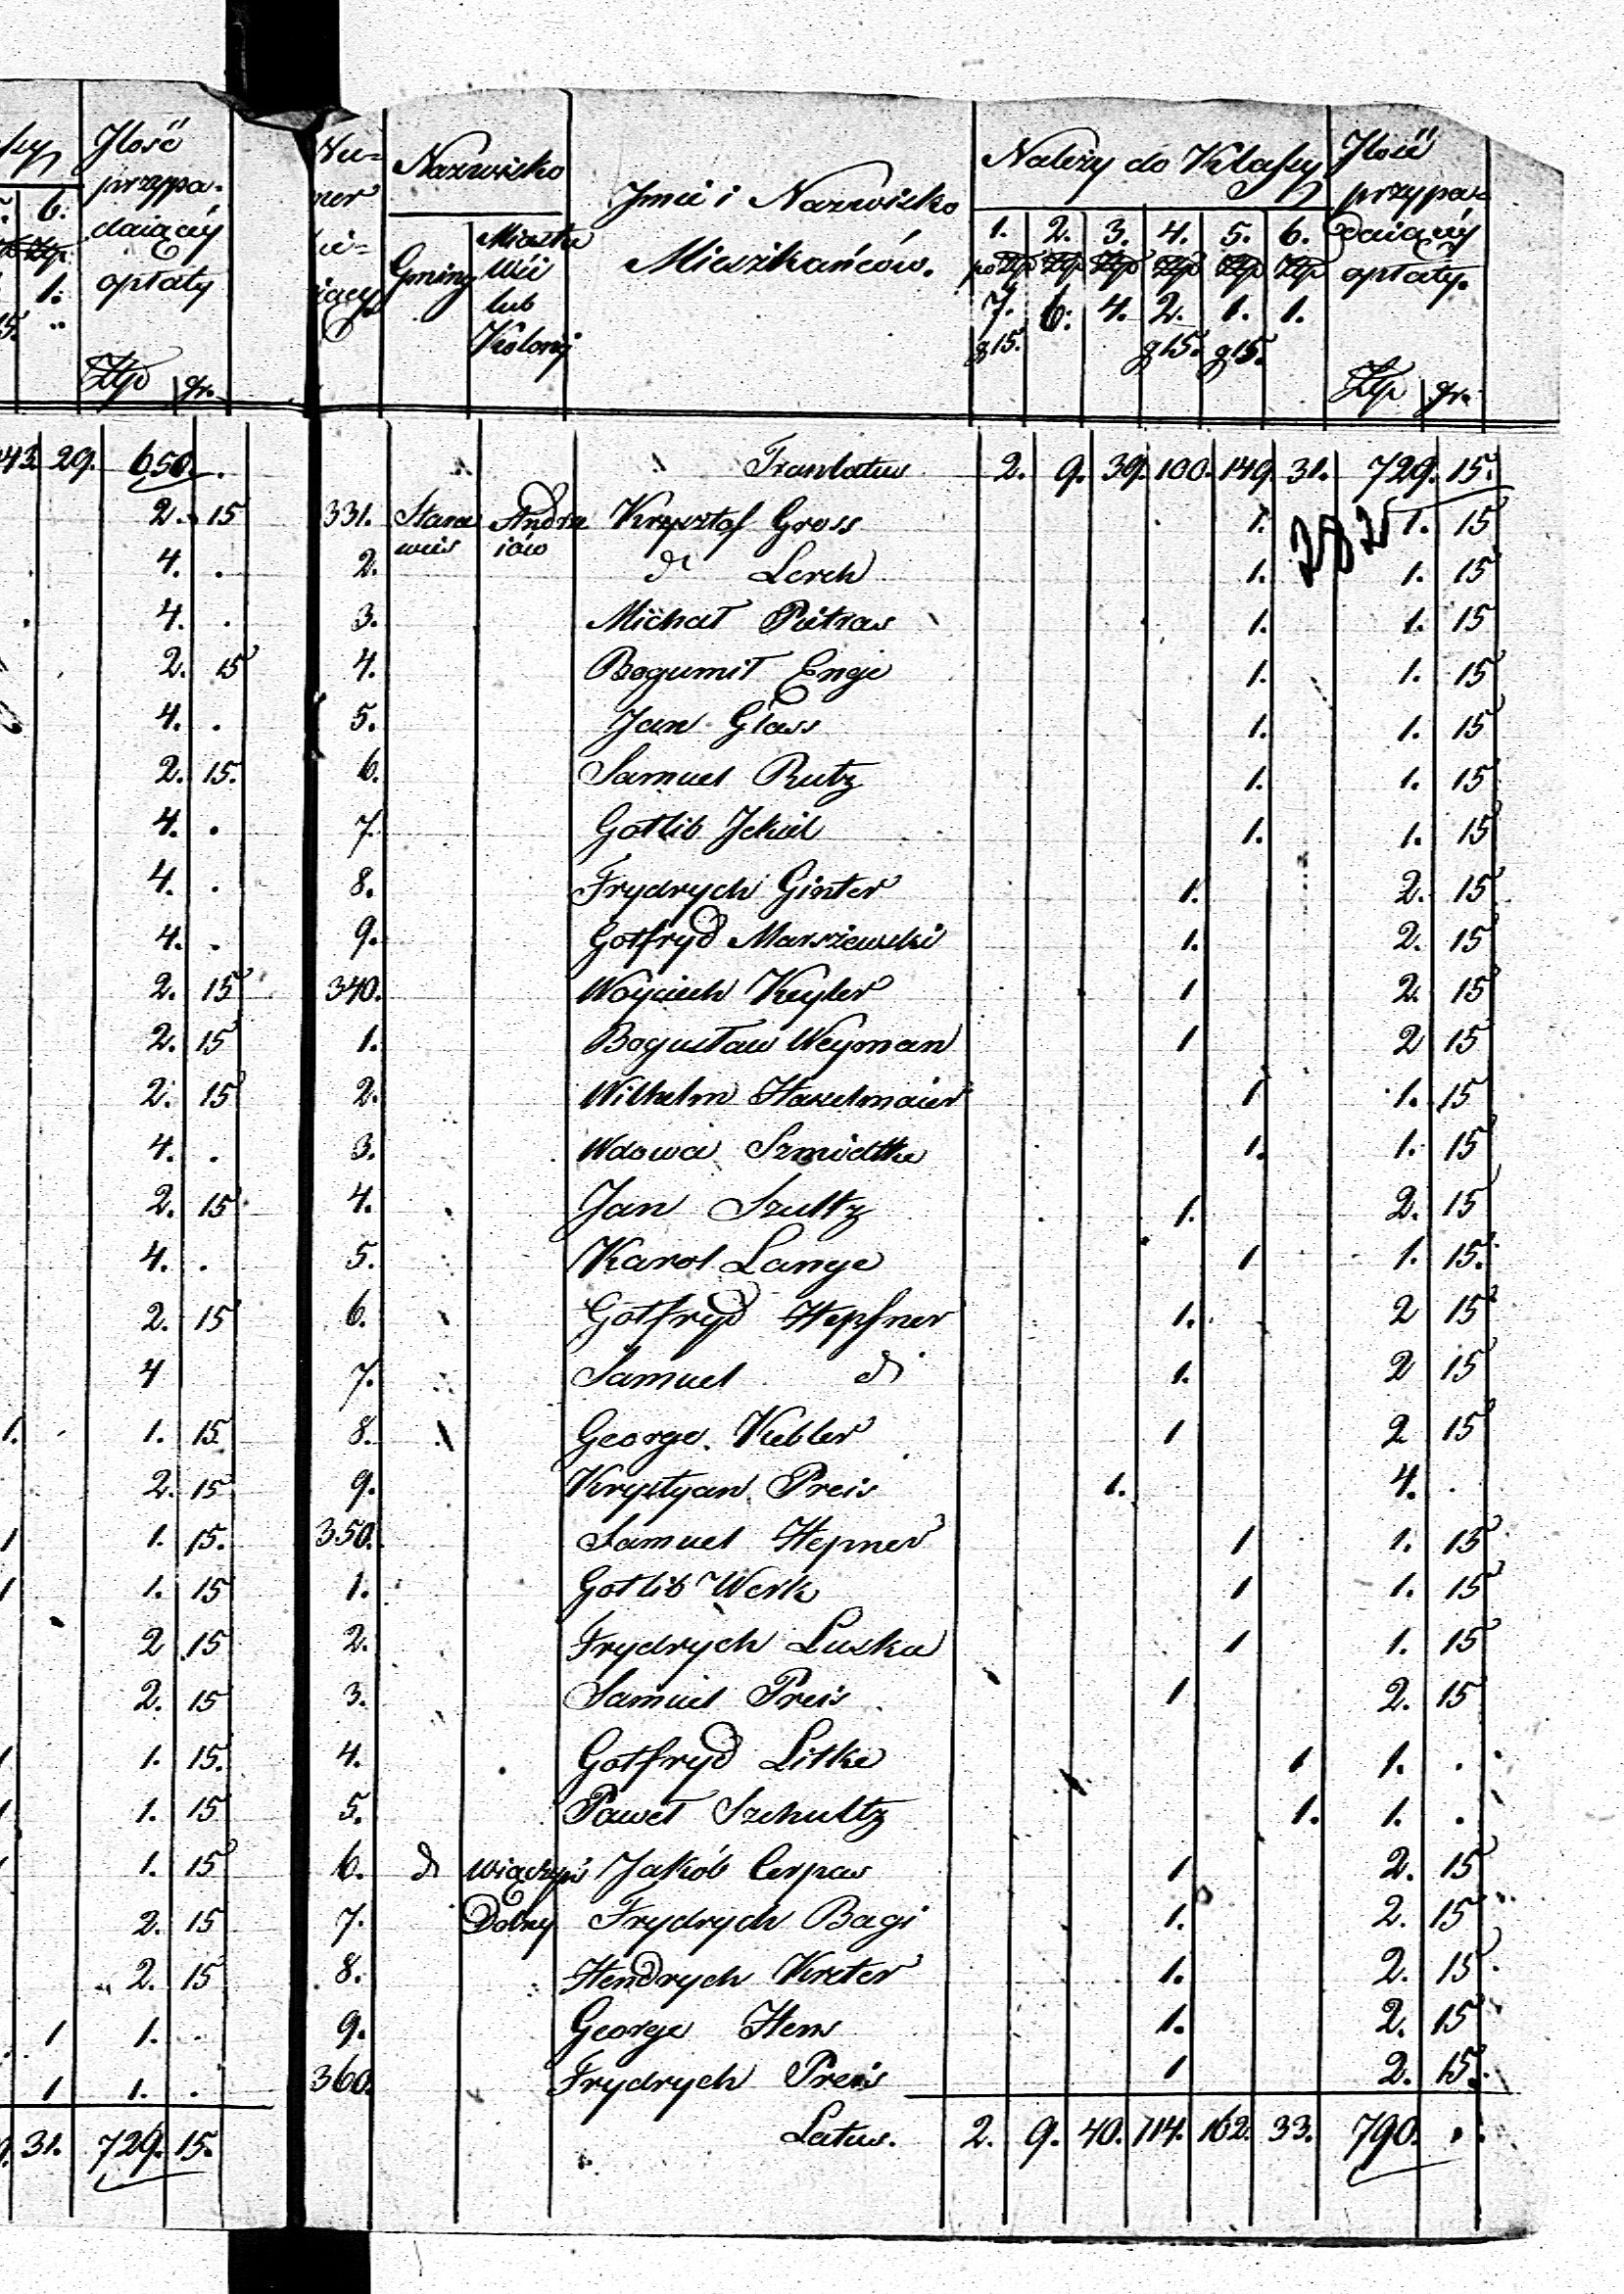 Jlość
przypa-
daiącéy
opłaty
6.
1.
Złp gr.
43. 29. 650. .
2. 15
4. .
4. .
2. 15
4. .
2. 15.
4. .
4. .
4. .
2. 15
2. 15
2. 15
4. .
2. 15
4. .
2. 15
4
1. 1. 15
2. 15
1 1. 15.
1 1. 15
2 15
2. 15
1 1. 15.
1 1. 15
1 1. 15
2. 15
2. 15
1 1. .
1 1. .
31. 729. 15.
Nazwisko
Gminy
Miasta
Wśi
lub
Kolonij
Jmie i Nazwisko
Mieszkańców.
Należy do Klassy
1. 2. 3. 4. 5. 6.
po Złp Złp Złp Złp Złp Złp
7. 6. 4. 2. 1. 1.
g 15. g 15. g 15.
Jlość
przypa-
daiącéy
opłaty.
Złp gr.
Translatus 2. 9. 39. 100. 149. 31. 729. 15.
331. Stara wieś Andrzeiów Krzysztof Gross 1. 1. 15
282
2. dº Lerch 1. 1. 15
3. Michał Pietras 1. 1. 15
4. Bogumił Enge 1. 1. 15
5. Jan Glass 1. 1. 15
6. Samuel Rutz 1. 1. 15
7. Gotlib Jekiel 1. 1. 15
8. Frydrych Ginter 1. 2. 15
9. Gotfryd Marszewski 1. 2. 15
340. Woyciech Keyler 1 2. 15
1. Bogusław Weyman 1 2 15
2. Wilhelm Haselmaier 1 1. 15
3. Wdowa Szmidtka 1. 1. 15
4. Jan Szultz 1. 2. 15
5. Karol Lange 1 1. 15.
6. Gotfryd Hepfner 1. 2 15
7. Samuel dº 1. 2 15
8. George Kubler 1 2 15
9. Krystyan Preis 1. 4. .
350. Samuel Hepner 1 1. 15
1. Gotlib Werk 1 1. 15
2. Frydrych Luska 1 1. 15
3. Samuel Preis 1 2. 15
4. Gotfryd Litke 1 1. .
5. Paweł Szchultz 1. 1. .
6. dº Wiączyń Jakób Cerpas 1 2. 15
7. Dolny Frydrych Bagi 1. 2. 15
8. Hendrych Kreter 1. 2. 15
9. George Hens 1. 2. 15
360. Frydrych Preis 1 2. 15.
Latus. 2. 9. 40. 114. 162. 33. 790. .